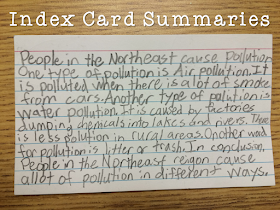 Index Card Summaries
People in the Northeast cause Pollution
One type of pollution is Air pollution. It
is polluted when there is a lot of smoke
from cars. Another type of pollution is
water pollution. It is caused by factories
dumping chemicals into lakes and rivers. There
is less pollution in rural areas. Onother word
for pollution is litter or trash. In conclusion,
People in the Northeast reigon cause
allot of pollution in different ways.